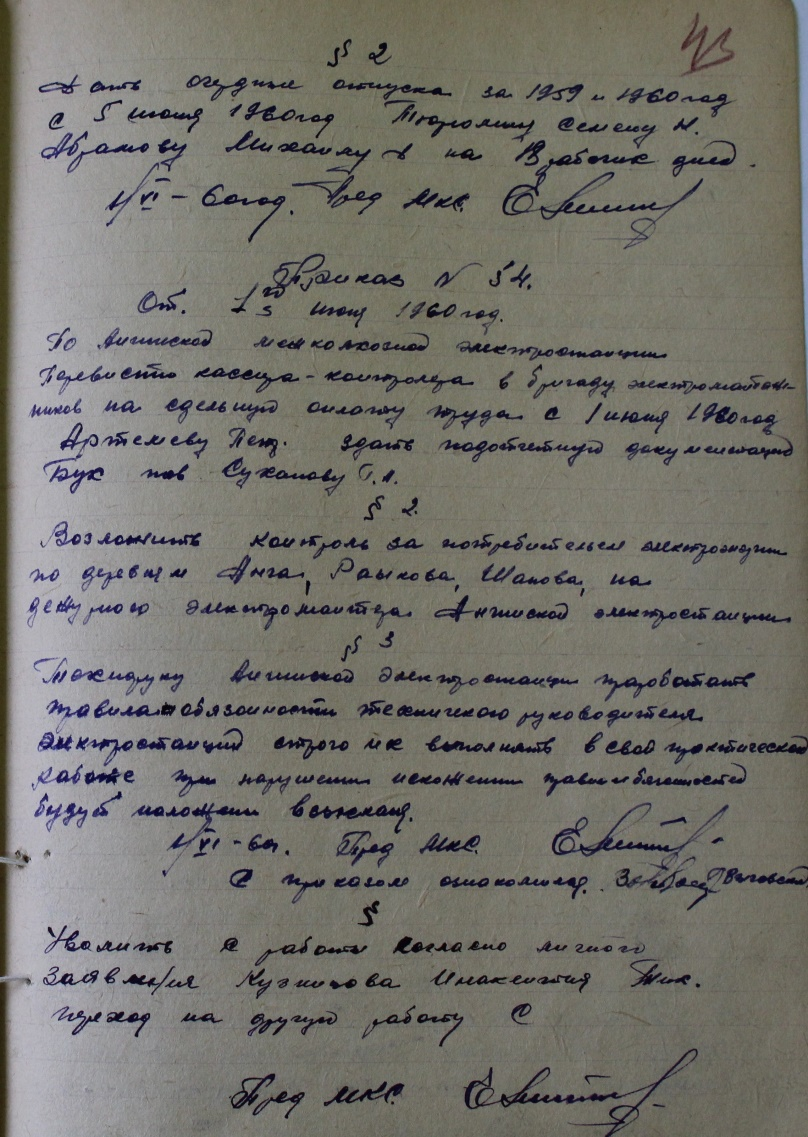 43
§ 2
Дать очердные отпуска за 1959 и 1960 год
с 5 июня 1960 год Семену Н.
Абрамову Михаилу в на рабочих дней.
1/VI - 60 год. Пред МКС.
Приказ N 54.
От. 1го июня 1960 год.
По Ангинской межколхозной электростанции
Перевисти кассира-контролера в бригаду электромонтаж-
ников на сдельную оплату труда с 1 июня 1960 год
Артемеву Пет. здать подотчетную документацию
Бух Суханову Г.Л.
§ 2.
Возложить контроль за потребителем электроэнергии
по деревням Анга, Рыкова, Шапова, на
дежурного электромонтера Ангинской электростанции
§ 3
Техноруку Ангинской электростанции проработать
правила обязанности технического руководителя
электростанций строго их выполнять в свой практической
работе при нарушении правил обязаностей
будут наложены взыскания.
1/VI - 60г. Пред МКС.
С приказом ознакомился
§
Уволить с работы согласно личного
Заявления Кузницова Инакентия
переход на другую работу С
Пред МКС.